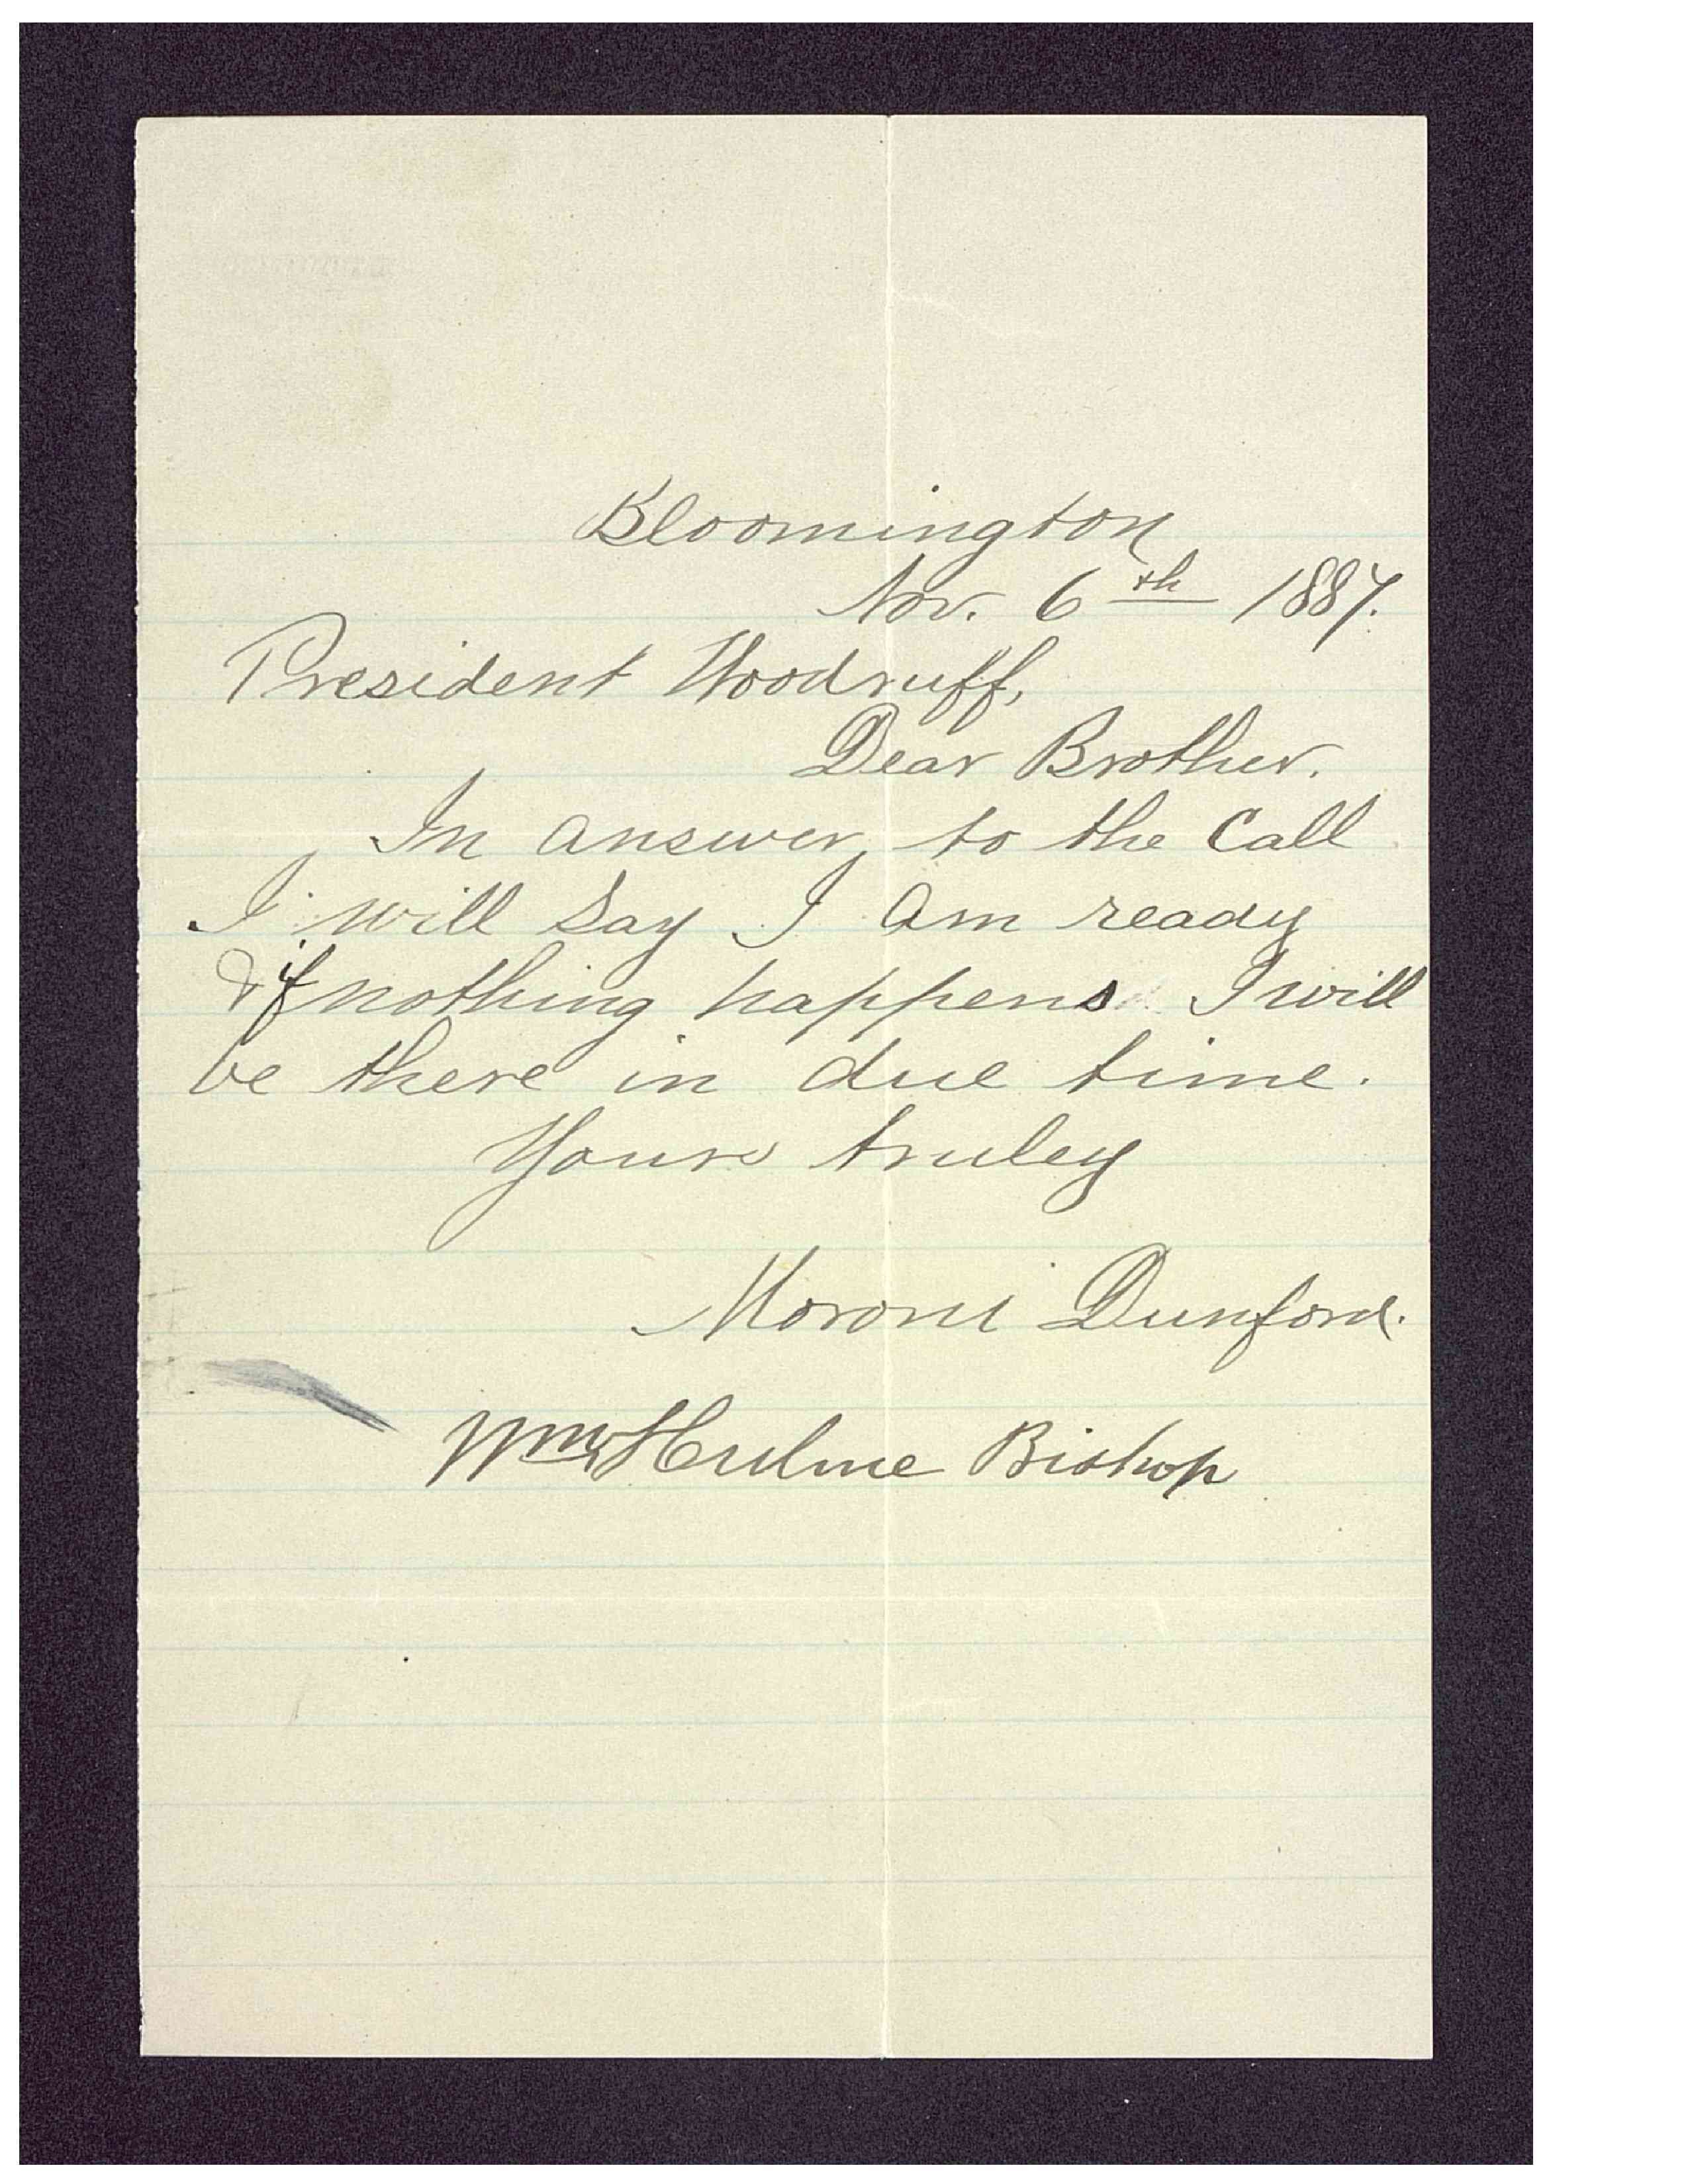 Bloomington
Nov. 6th 1887.
President Woodruff,
Dear Brother.
In answer, to the Call
I will Say I am ready
& if nothing happens I will
be there in due time.
Yours truley
Moroni Dunford.
Wm Hulme Bishop